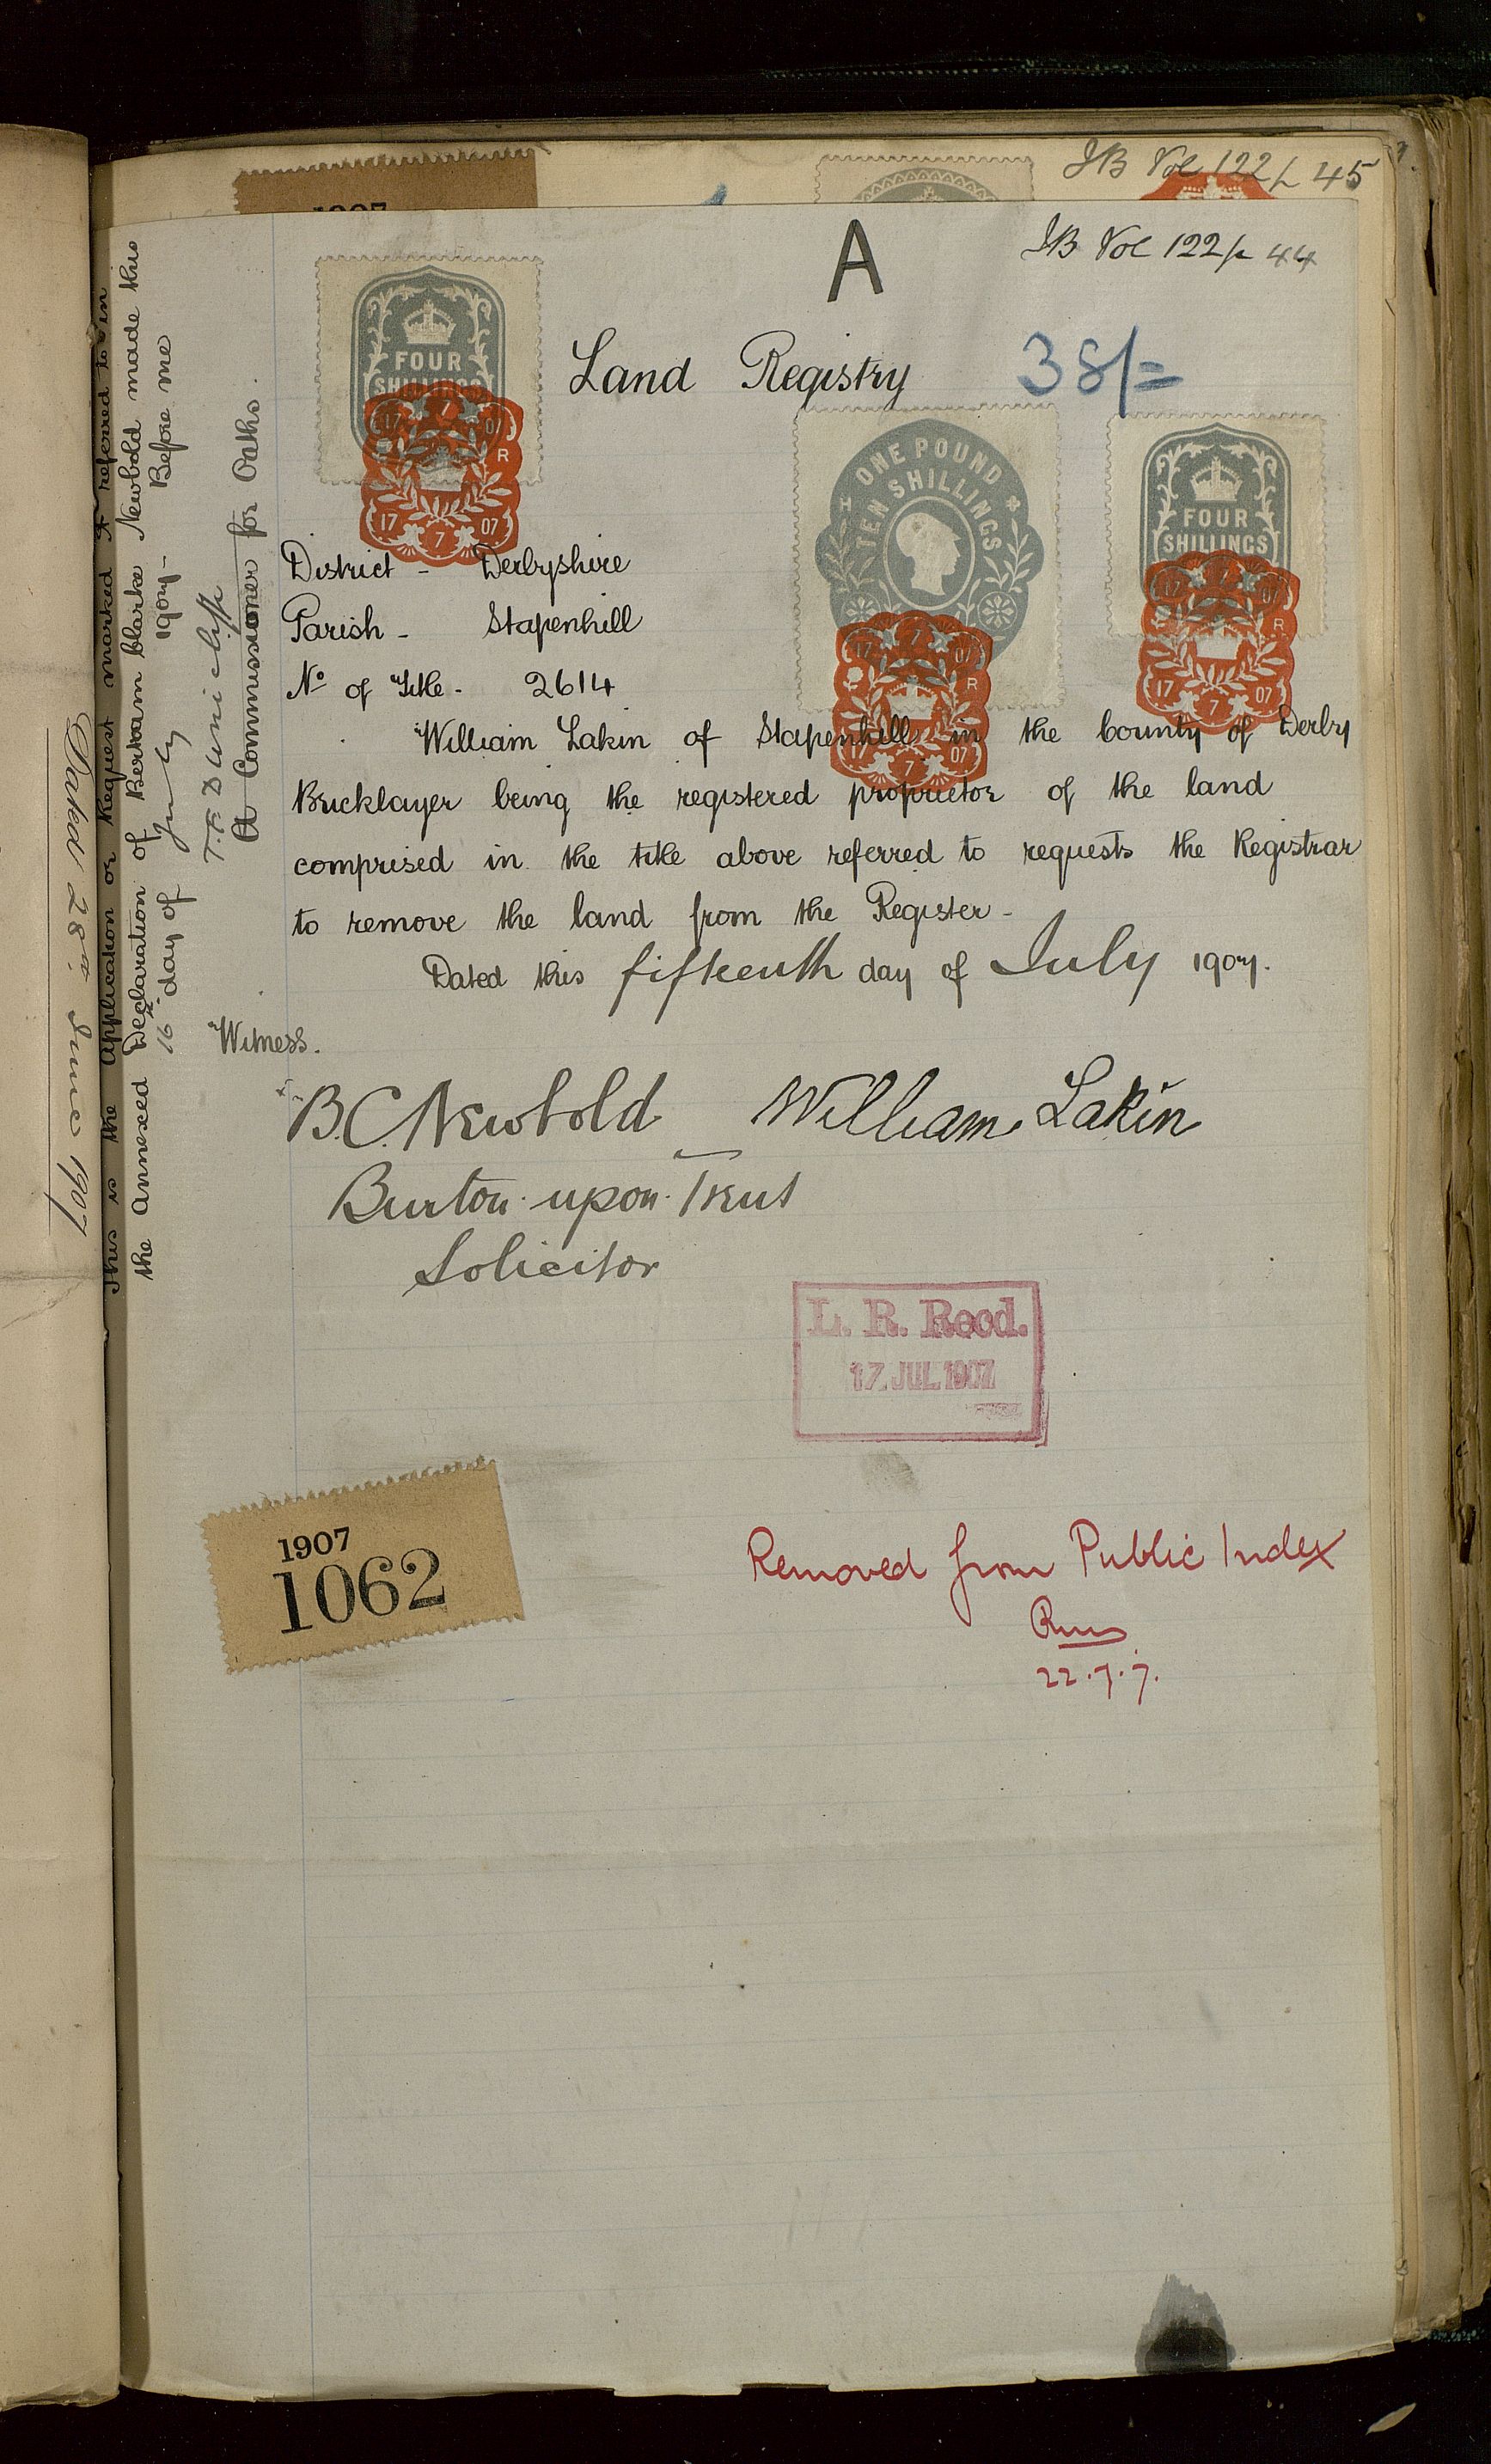 IB Vol 122 p 45
1907
A
IB Vol 122 p 44
Land Registry
38/=
FOUR
SHILLINGS
17 7 07
R
17 7 07
ONE POUND
TEN SHILLINGS
17 7 07
R
07
7
FOUR
SHILLINGS
17 7 07
R
17 7 07
District - Derbyshire
Parish - Stapenhill
No of Title - 2614
William Lakin of Stapenhill in the County of Derby
Bricklayer being the registered proprietor of the land
comprised in the title above referred to requests the Registrar
to remove the land from the Register -
Dated this fifteenth day of July 1907.
Witness.
B.C. Newbold William Lakin
Burton-upon-Trent
Solicitor
L. R. Recd.
17 JUL 1907
1907
1062
Removed from Public Index
22.7.7.
This is the Application or Request marked A referred to in
the annexed Declaration of Bertram Clarke Newbold made this
16th day of July 1907 - Before me
A Commissioner for Oaths.
Dated 28th June 1907